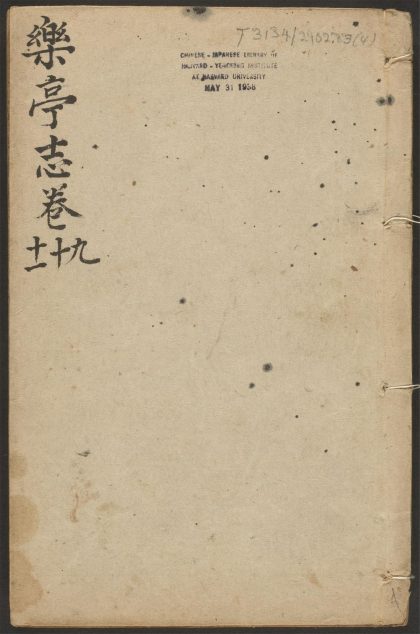 樂亭志卷
九
十
十一
T3134/2902.83(4)
CHINESE - JAPANESE LIBRARY OF
HARVARD - YENCHING INSTITUTE
AT HARVARD UNIVERSITY
MAY 31 1958